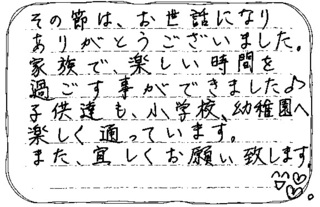 その節は、お世話になり
ありがとうございました。
家族で、楽しい時間を
過ごす事ができました♪
子供達も、小学校、幼稚園へ
楽しく通っています。
また、宜しくお願い致します